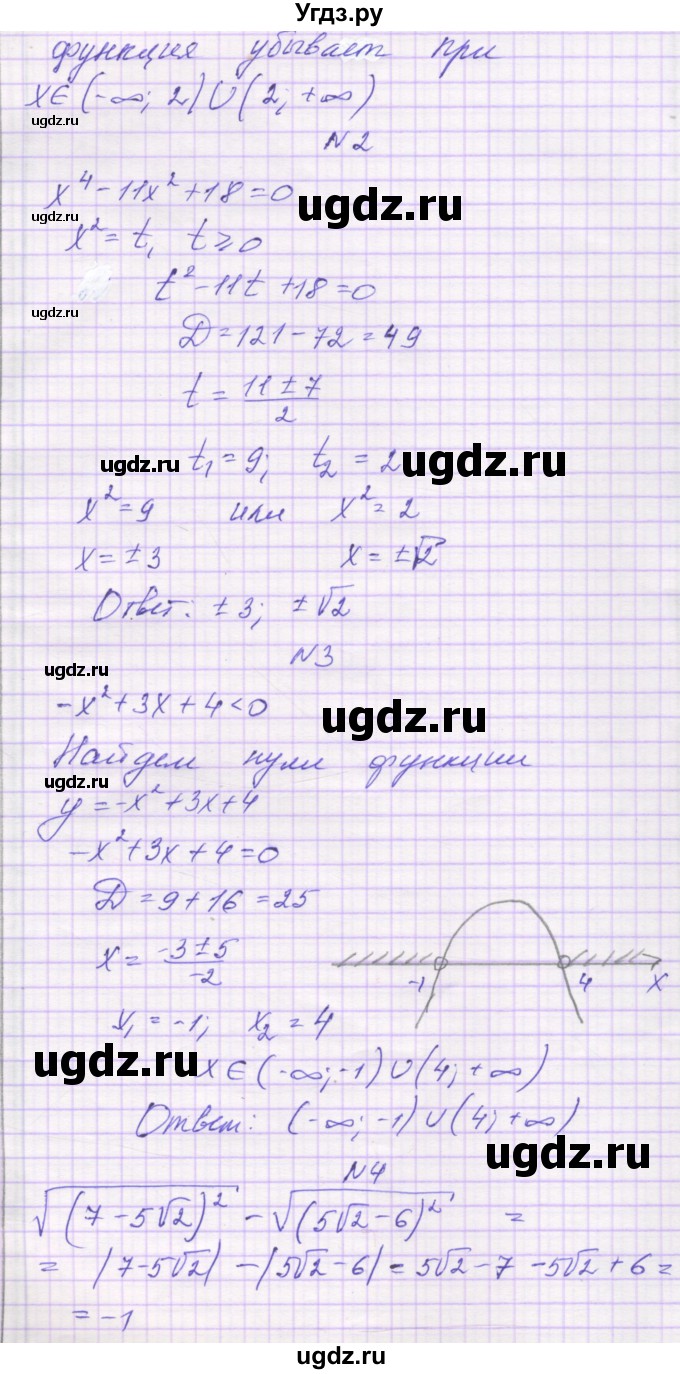 Угдз.ру
функция убывает при
x∈(-∞; 2)∪(2; +∞)
ugdz.ru
N2
x⁴-11x²+18=0
ugdz.ru
ugdz.ru
x²=t, t≥0
t²-11t+18=0
ugdz.ru
D=121-72=49
t=(11±7)/2
t₁=9; t₂=2
ugdz.ru
ugdz.ru
x²=9 или x²=2
x=±3 x=±√2
Ответ: ±3; ±√2
N3
ugdz.ru
-x²+3x+4<0
ugdz.ru
Найдем нули функции
ugdz.ru
y=-x²+3x+4
-x²+3x+4=0
D=9+16=25
x=(-3±5)/(-2)
-1 4 x
x₁=-1; x₂=4
ugdz.ru
x∈(-∞;-1)∪(4;+∞)
Ответ: (-∞;-1)∪(4;+∞)
ugdz.ru
N4
√((7-5√2)²)-√((5√2-6)²) =
= |7-5√2|-|5√2-6|=5√2-7-5√2+6=
=-1
ugdz.ru